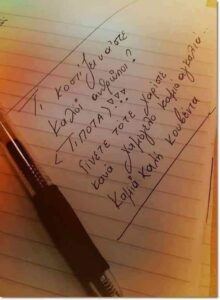 Τι κοστίζει να'στε
καλοί άνθρωποι?
<ΤΙΠΟΤΑ>!!!
Γίνετε τότε χαρίστε
κανά χαμόγελο καμιά αγκαλιά
Καμιά καλή κουβέντα